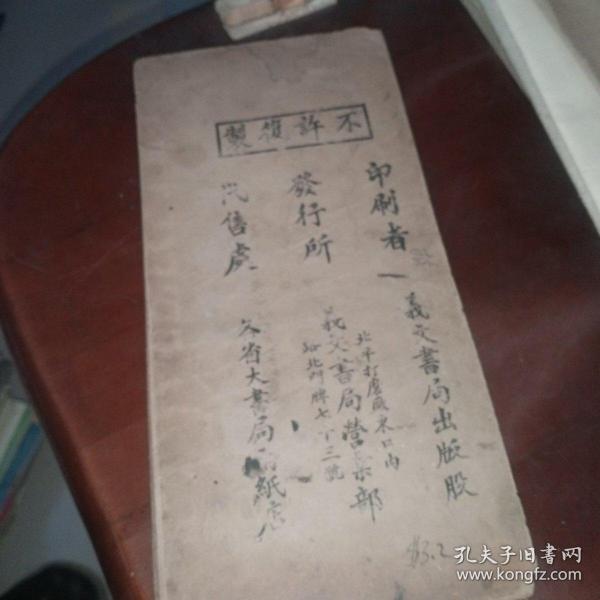 不許復製
印刷者 義文書局出版股
發行所
北平打磨廠東口內
路北門牌七十三號
義文書局營業部
代售處 各省大書局 紙店
孔夫子旧书网
www.kongfz.com